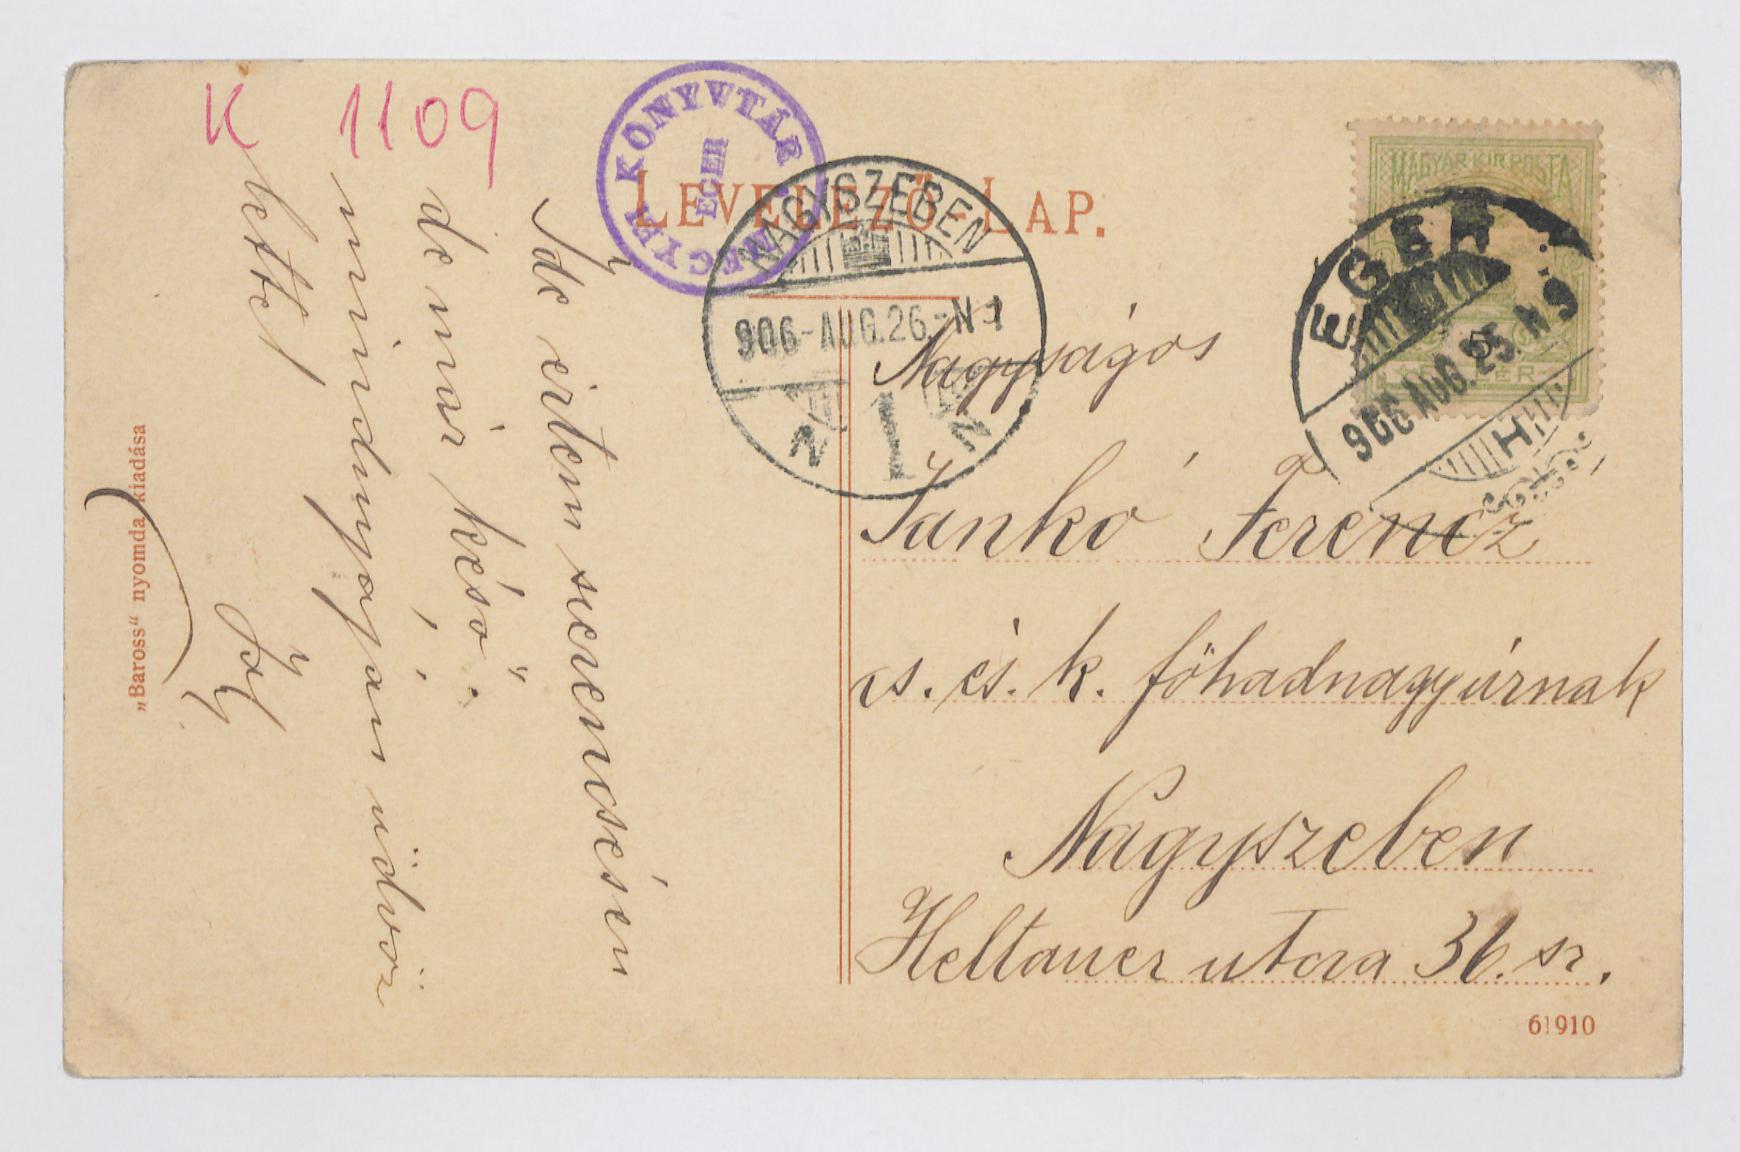 K 1109
MEGYEI KÖNYVTÁR
EGER
LEVELEZŐ-LAP.
NAGYSZEBEN
906-AUG.26.-N 1
N 1 N
MAGYAR KIR. POSTA
5
EGER
906 AUG. 25. N 9
H
Ide értem szerencsésen
de már késő.
mindnyájan üdvöz
lettel
Nagyságos
Jankó Ferencz
cs. és. k. főhadnagyúrnak
Nagyszeben
Heltauer utcza 36. sz.
61910
„Baross“ nyomda kiadása